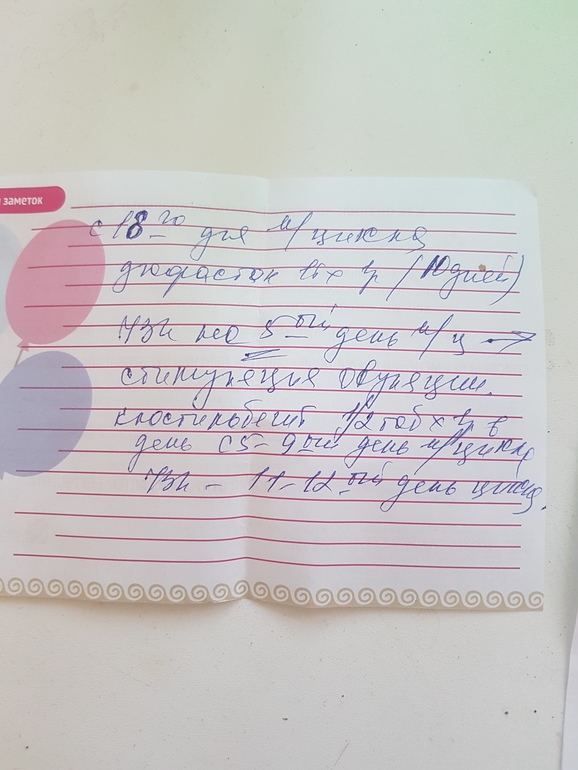 заметок
с 18-го дня м/цикла
дюфастон 1т х 2р (10 дней)
УЗИ на 5-ый день м/ц →
стимуляция овуляции.
клостильбегит 1/2 таб х 2р в
день с 5-9ый день м/цикла
УЗИ - 11-12-ый день цикла.